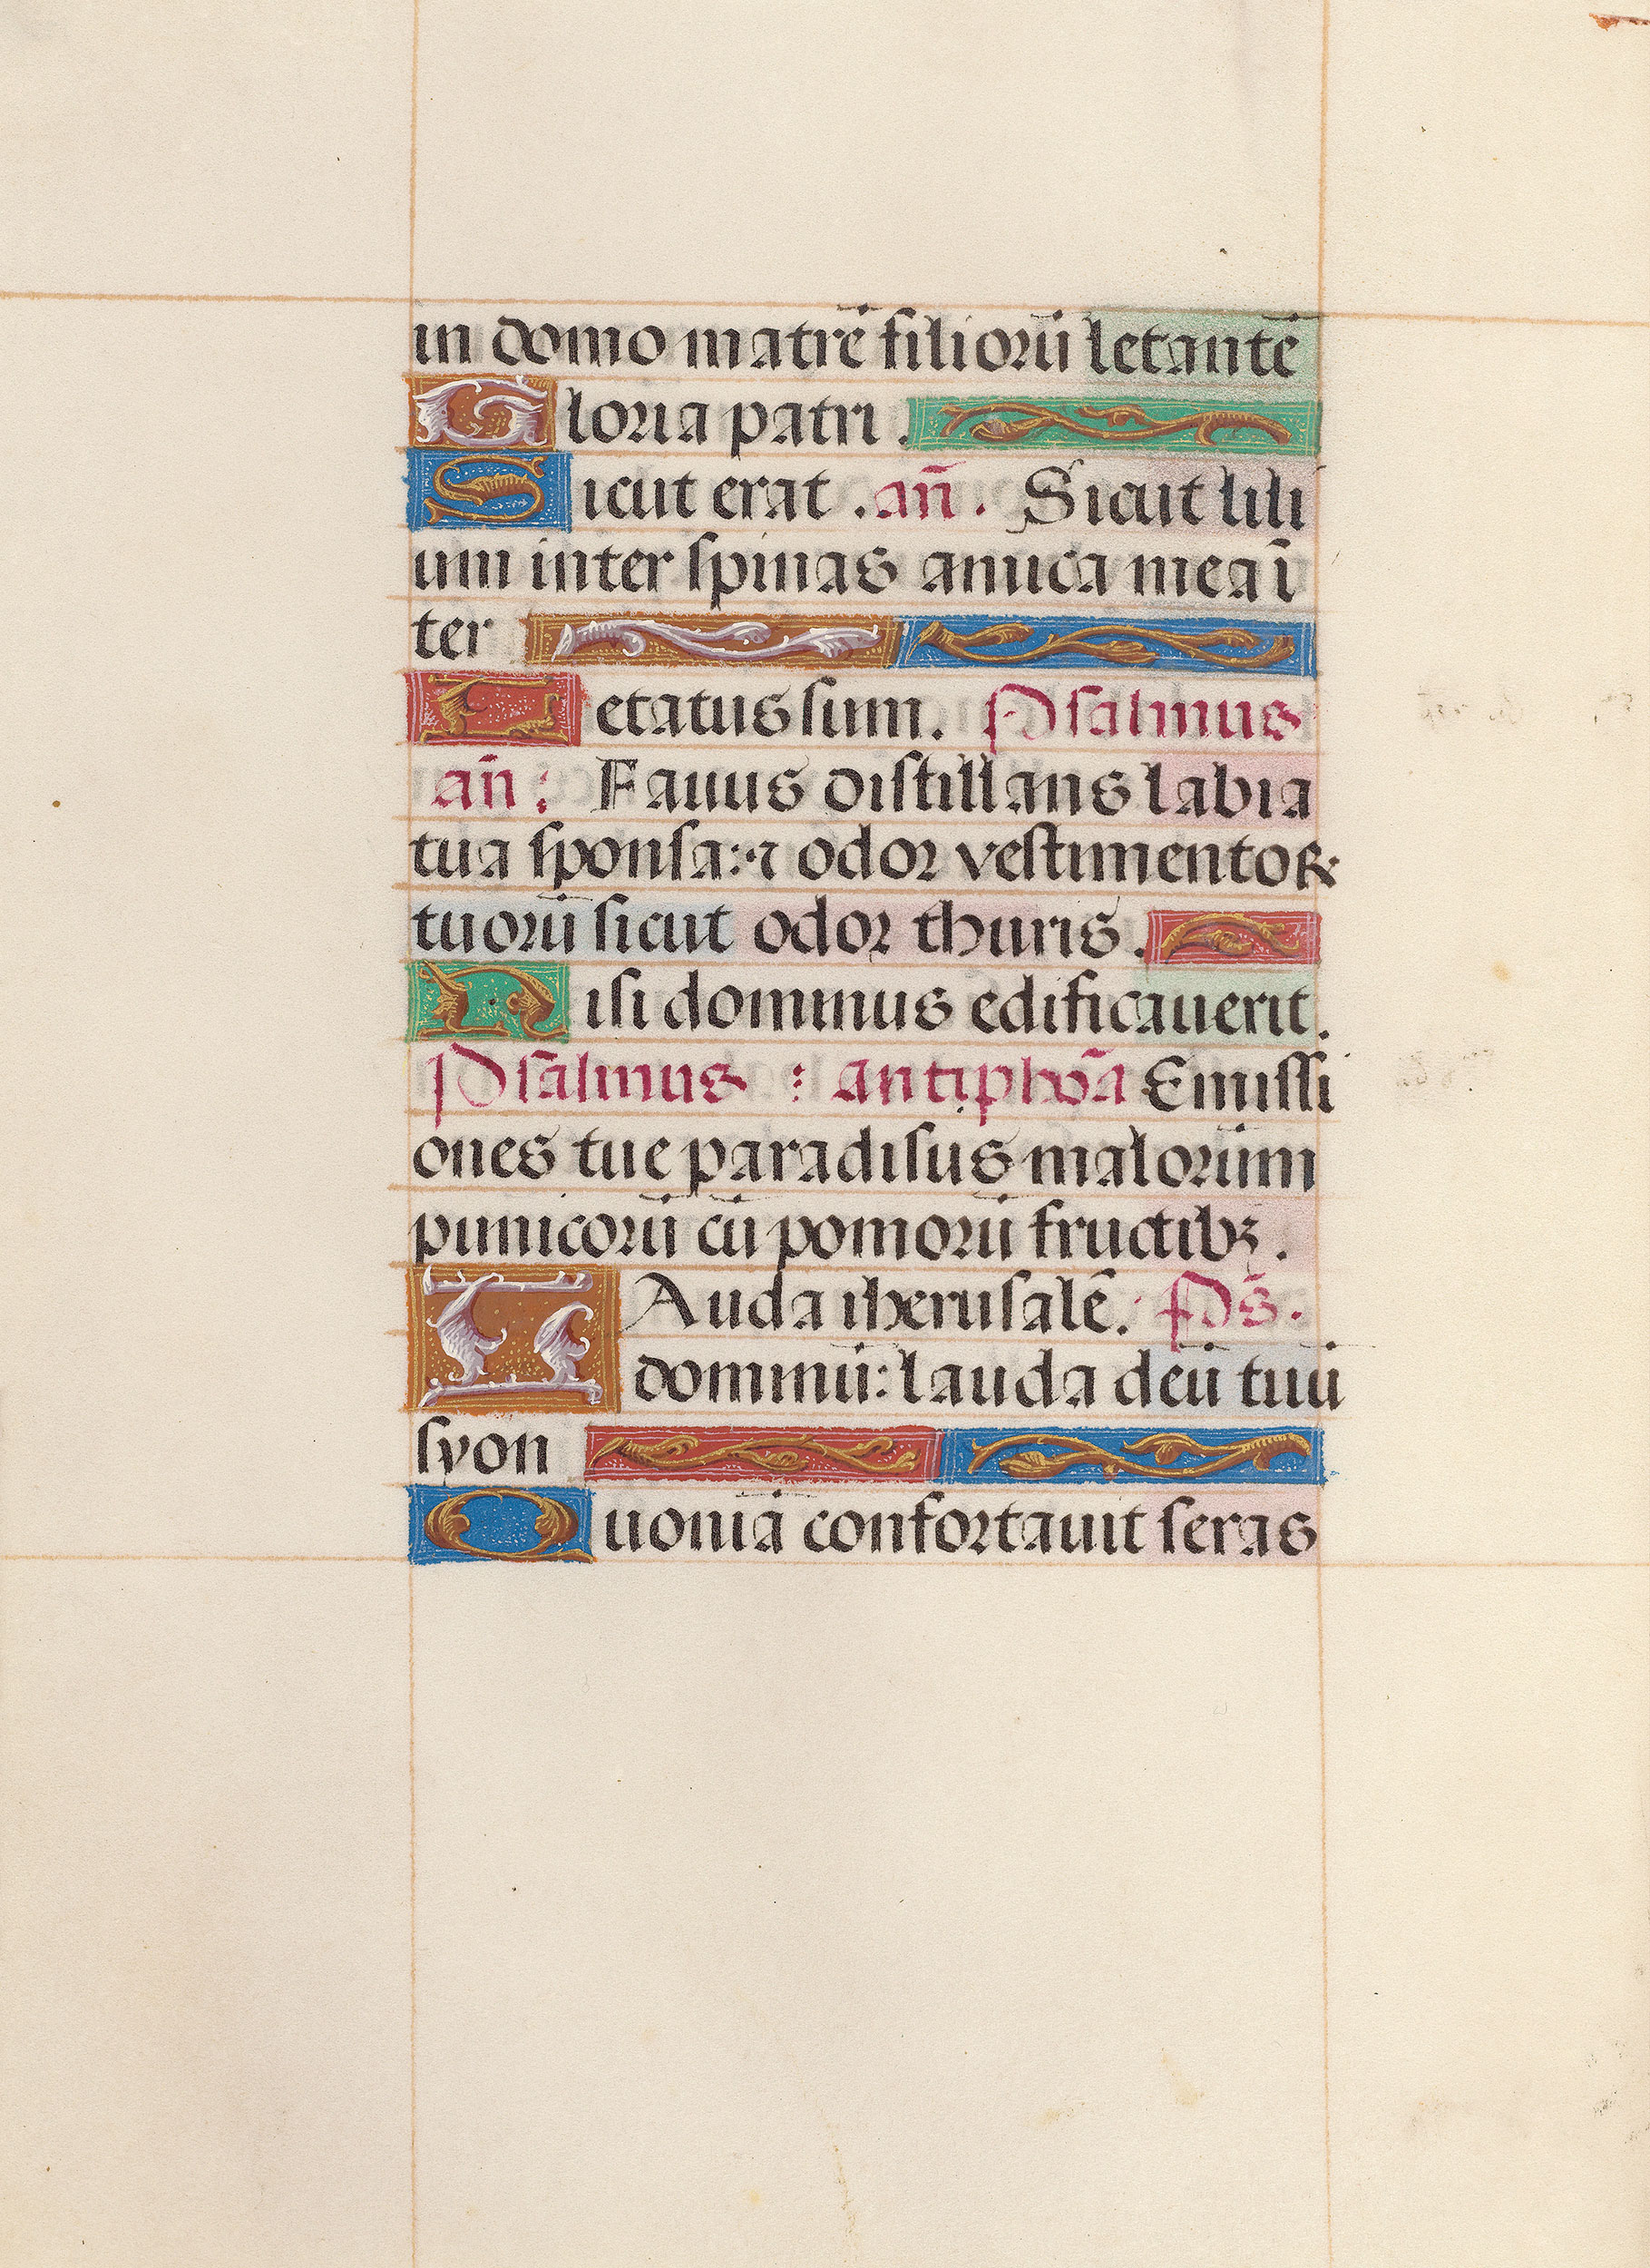 in domo matrē filiorū letantē
Gloria patri.
Sicut erat. an̄. Sicut lili
um inter spinas amica mea ī
ter
Letatus sum. Psalmus
an̄: Fauus distillans labia
tua sponsa: ⁊ odor vestimentoꝝ
tuorū sicut odor thuris.
Nisi dominus edificauerit.
Psalmus : antiphōa Emissi
ones tue paradisus malorum
punicorū cū pomorū fructibꝫ.
LAuda iherusalē. Ps̄.
dominū: lauda deū tuū
syon
Quoniā confortauit seras